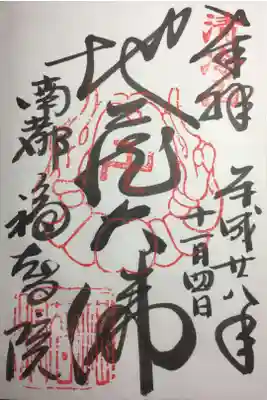 奉拝
平成廿八年
十一月四日
地蔵大佛
南都 福智院